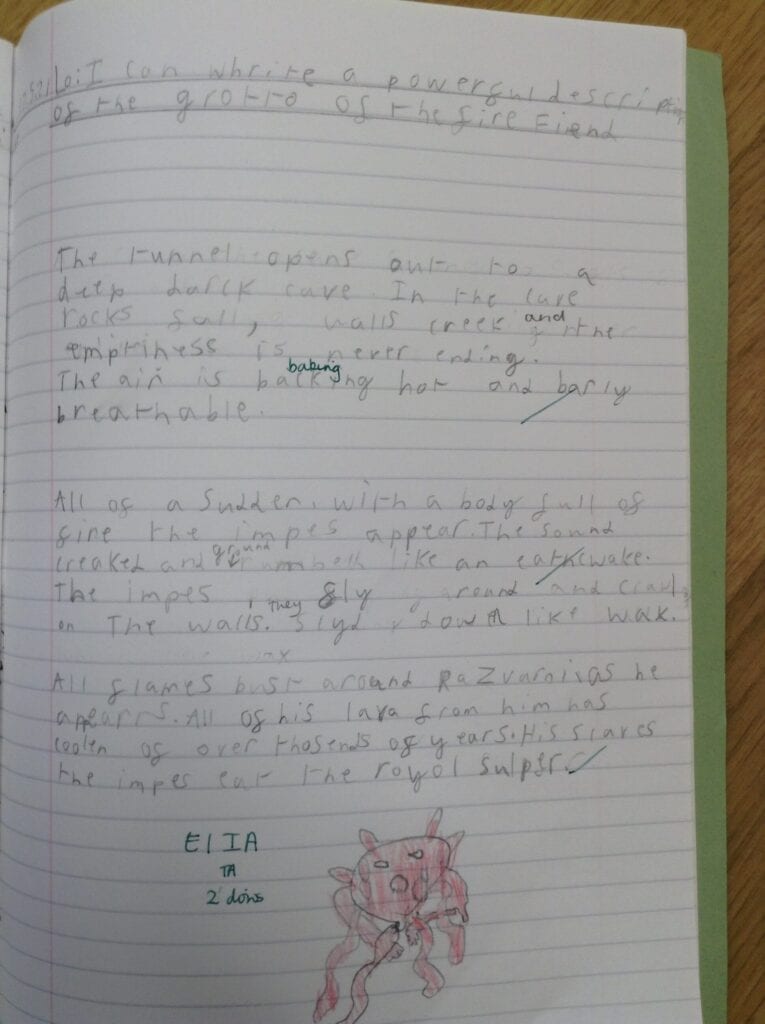 Lo: I can whrite a powerful descripti
of the grotto of the fire Fiend
The tunnel opens out to a
deep darck cave. In the cave
rocks fall, walls creek and the
emptiness is never ending.
baking
The air is backing hot and barly
breathable.
All of a sudden, with a body full of
fire the impes appear. The sound
ground
creaked and like an
The impes fly around and crawl
on The walls. They slyd down like wax.
All flames bust around Razvaroi, as he
appears. All of his lava from him has
coolen of over thosends of years. His slaves
the impes eat the royol sulper.
EIIA
TA
2 doins